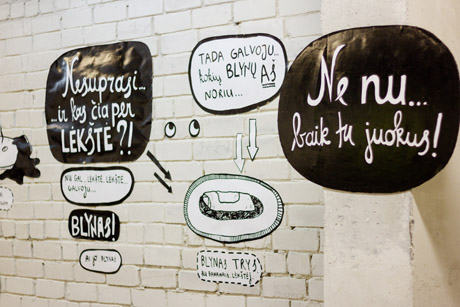 Nesuprasi...
...ir kas čia per
LĖKŠTĖ?!
NU GAL.. LĖKŠTĖ, LĖKŠTĖ,
GALVOJU...
BLYNAS!
AŠ JO BLYNAS
TADA GALVOJU...
kokių BLYNŲ AŠ
NORIU...
BLYNAS TRYS
SU BANANAIS
LĖKŠTĖ..
Ne nu...
baik tu juokus!